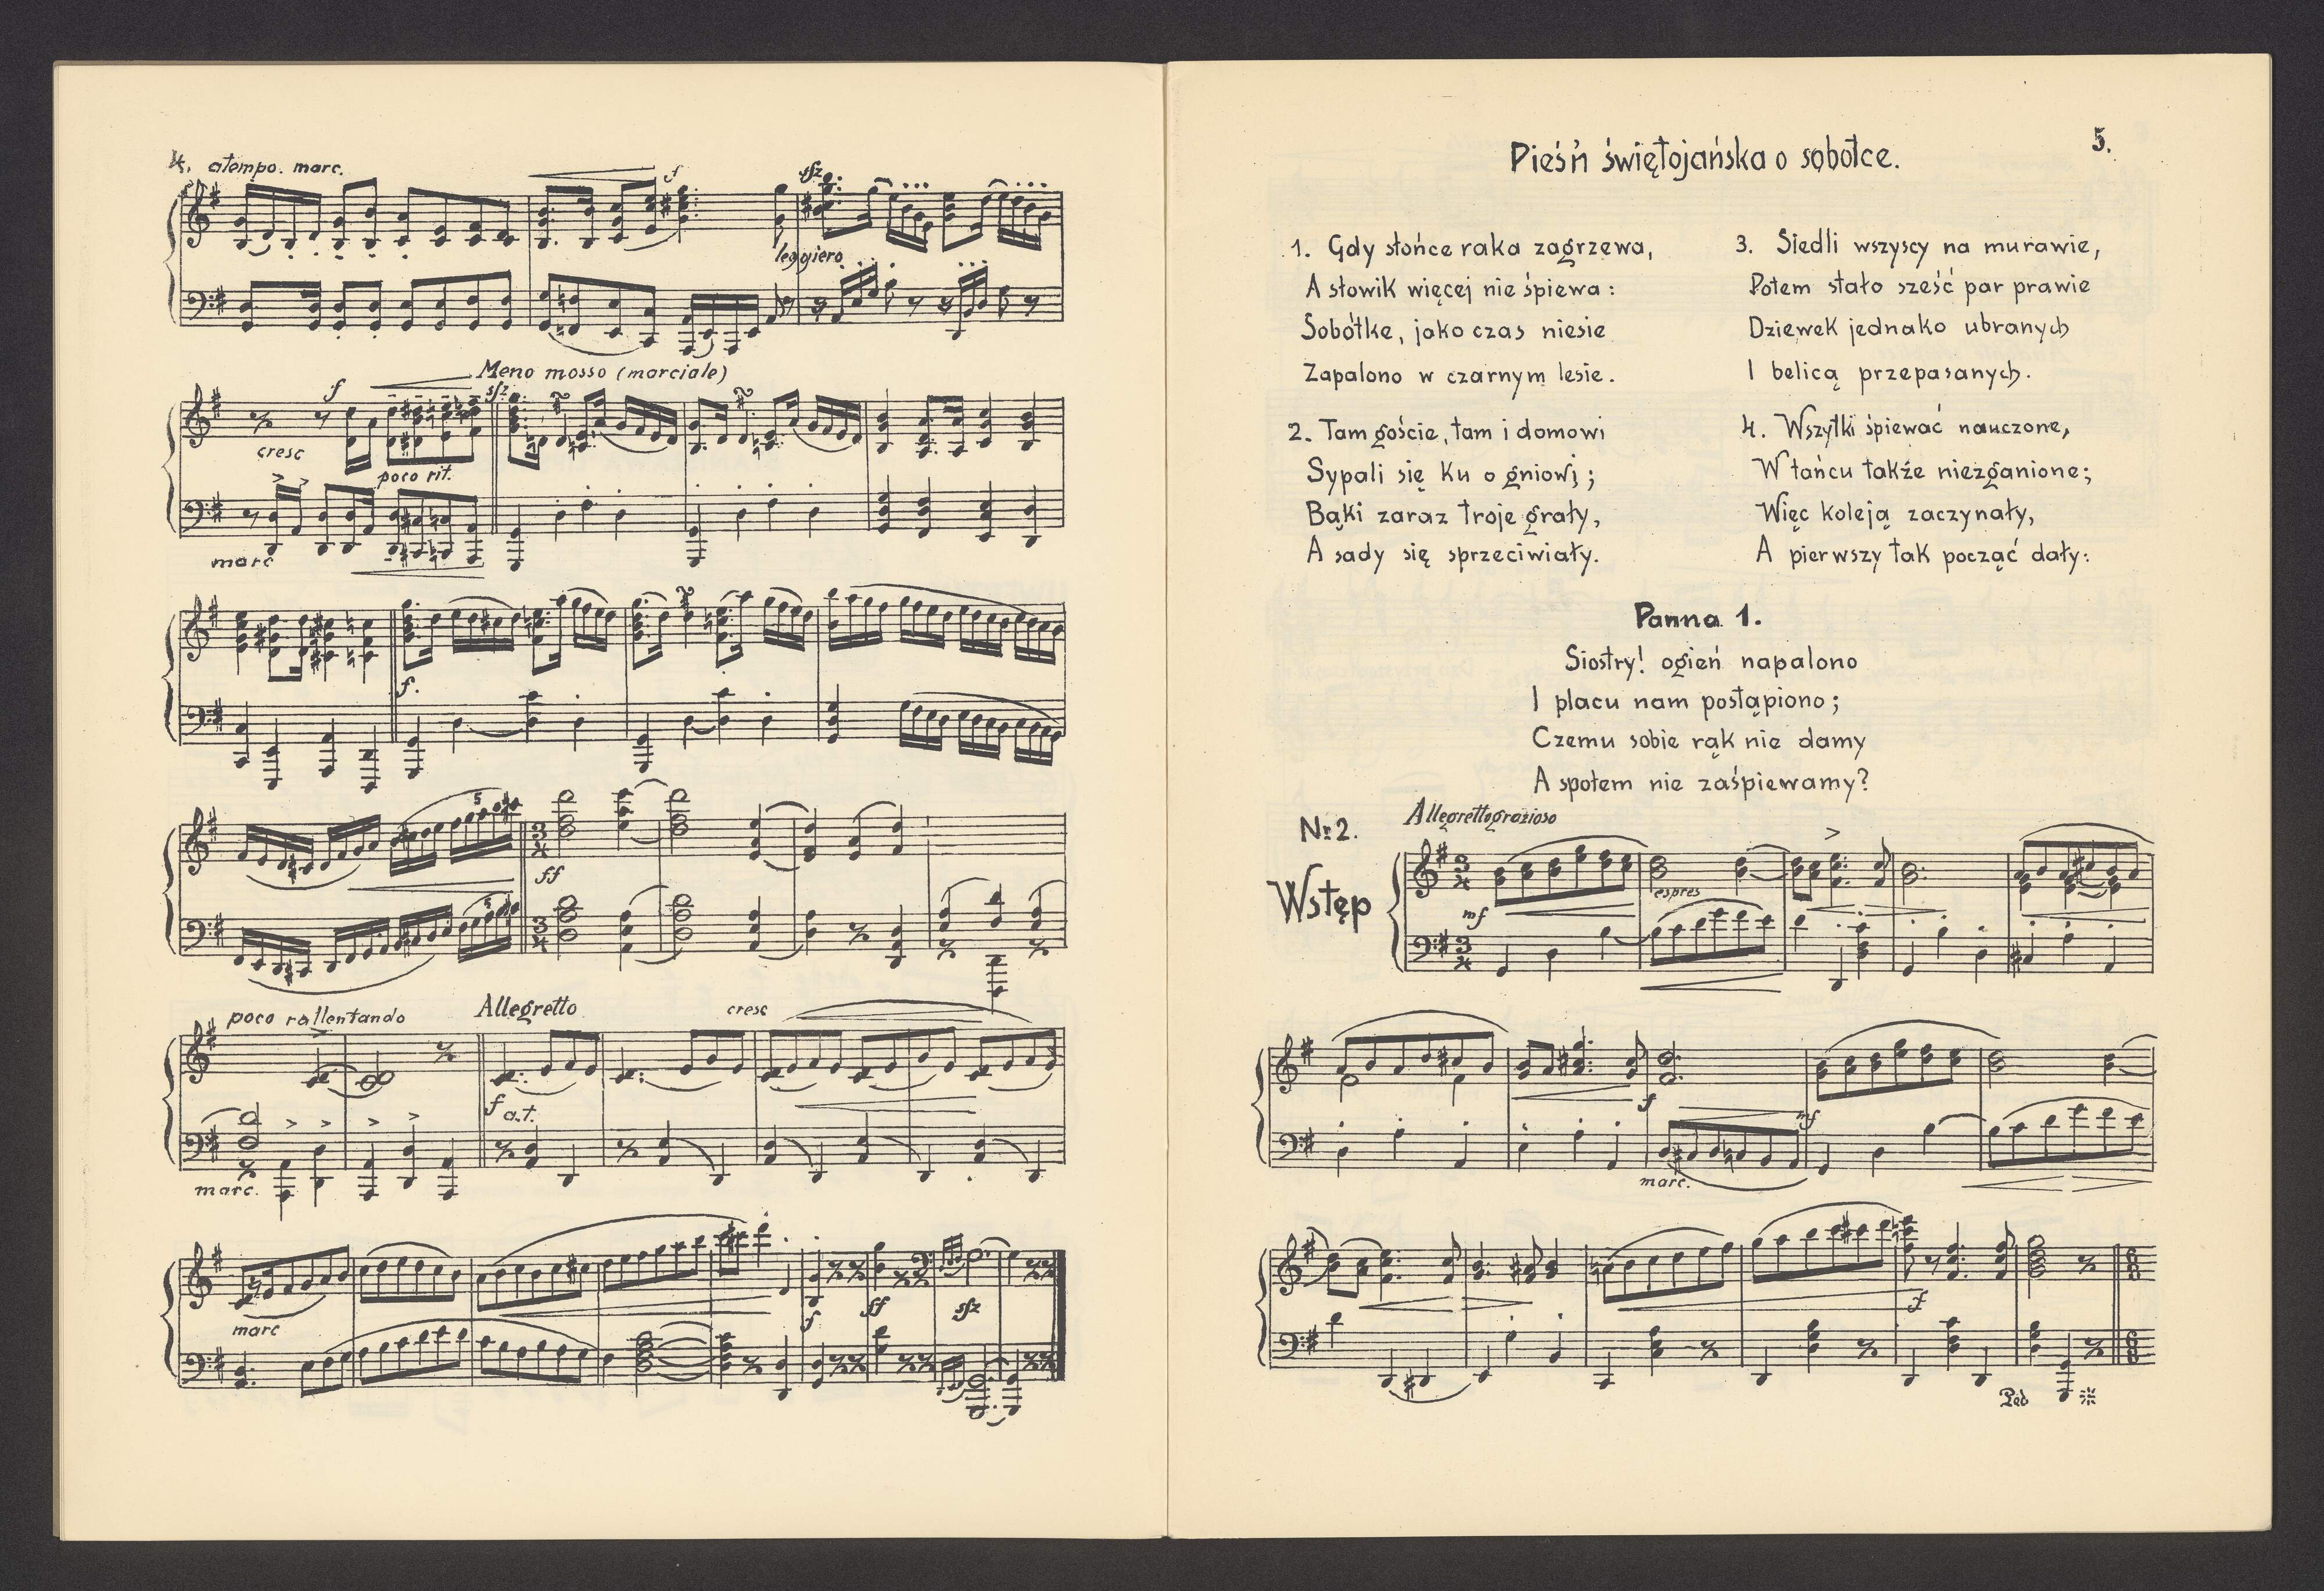 4. atempo. marc.
f
sfz
leggiero
Meno mosso (marciale)
f
sfz
cresc
poco rit.
marc
f.
5
3
4
ff
5
3
4
poco rallentando
Allegretto
cresc
f a.t.
marc.
marc
f
ff
sfz
5.
Pieśń świętojańska o sobótce.
1. Gdy słońce raka zagrzewa,
A słowik więcej nie śpiewa:
Sobótkę, jako czas niesie
Zapalono w czarnym lesie.
2. Tam goście, tam i domowi
Sypali się ku ogniowi;
Bąki zaraz troje grały,
A sady się sprzeciwiały.
3. Siedli wszyscy na murawie,
Potem stało sześć par prawie
Dziewek jednako ubranych
I belicą przepasanych.
4. Wszytki śpiewać nauczone,
W tańcu także niezganione;
Więc koleją zaczynały,
A pierwszy tak począć dały:
Panna 1.
Siostry! ogień napalono
I placu nam postąpiono;
Czemu sobie rąk nie damy
A społem nie zaśpiewamy?
Nr 2.
Allegrettograzioso
Wstęp
3
4
mf
espres
3
4
f
mf
marc.
f
6
8
6
8
Ped